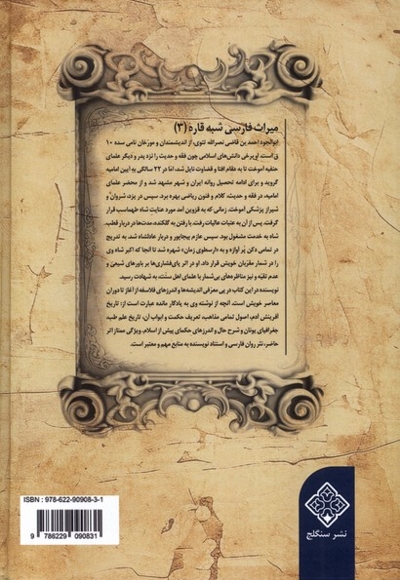 میراث فارسی شبه قاره (۳)
ابوالجود احمد بن قاضی نصرالله تتوی، از اندیشمندان و مورخان نامی سده ۱۰
ق است. او برخی دانش‌های اسلامی چون فقه و حدیث را نزد پدر و دیگر علمای
حنفیه آموخت تا به مقام افتا و قضاوت نایل شد، امّا در ۲۲ سالگی به آیین امامیه
گروید و برای ادامه تحصیل روانه ایران و شهر مشهد شد و از محضر علمای
امامیه، در فقه و حدیث، کلام و فنون ریاضی بهره برد. سپس در یزد،
شیراز پزشکی آموخت. زمانی که به قزوین آمد مورد عنایت شاه طهماسب قرار
گرفت. پس از آن به عتبات عالیات رفت. با رفتن به گلکنده، مدت‌ها در دربار قطب
شاه به خدمت مشغول بود. سپس عازم بیجاپور و دربار عادلشاه شد. به تدریج
در تمامی دکن پر آوازه و به «ارسطوی زمان» شهره شد تا آنجا که اکبر شاه وی
را در شمار مقرّبان خویش قرار داد. او در اثر پای‌فشاری‌ها بر باورهای شیعی و
عدم تقیّه و نیز مناظره‌های بی‌شمار با علمای اهل سنّت، به شهادت رسید.
نویسنده در این کتاب در پی معرّفی اندیشه‌ها و اندرزهای فلاسفه از آغاز تا دوران
معاصر خویش است. آنچه از نوشته وی به یادگار مانده عبارت است از: تاریخ
آفرینش آدم، اصول تمامی مذاهب، تعریف حکمت و ابواب آن، تاریخ علم طب،
جغرافیای یونان و شرح حال و اندرزهای حکمای پیش از اسلام. ویژگی ممتاز اثر
حاضر، نثر روان فارسی و استناد نویسنده به منابع مهم و معتبر است.
ISBN : 978-622-90908-3-1
9 786229 090831
نشر سنگلج